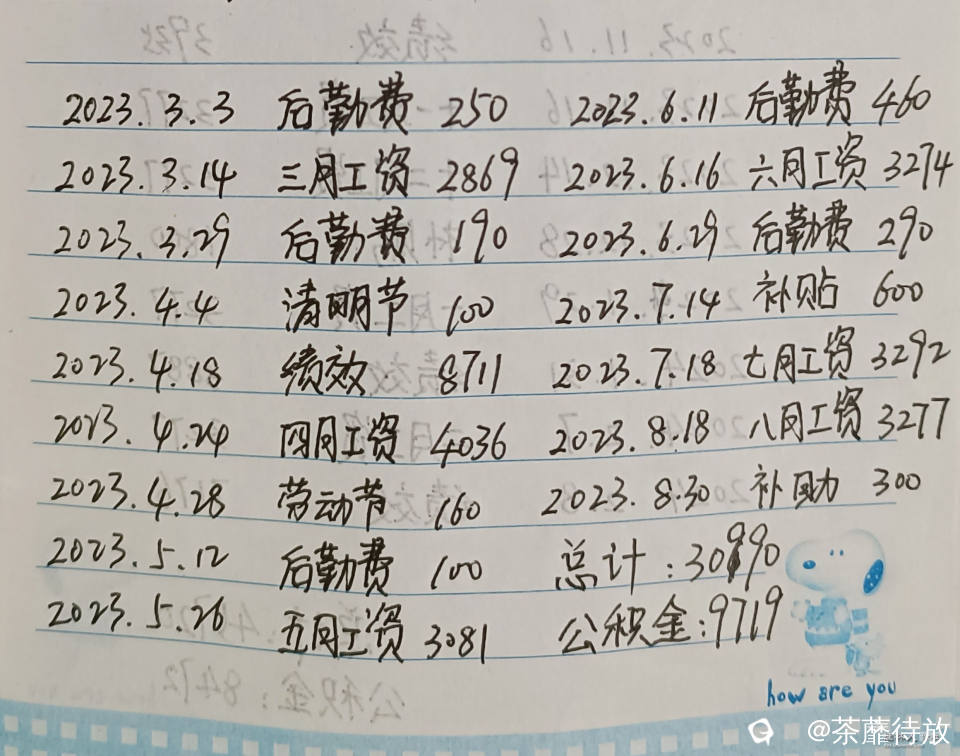 2023.3.3 后勤费 250 2023.6.11 后勤费 460
2023.3.14 三月工资 2869 2023.6.16 六月工资 3274
2023.3.29 后勤费 190 2023.6.29 后勤费 290
2023.4.4 清明节 100 2023.7.14 补贴 600
2023.4.18 绩效 8711 2023.7.18 七月工资 3292
2023.4.24 四月工资 4036 2023.8.18 八月工资 3277
2023.4.28 劳动节 160 2023.8.30 补助 300
2023.5.12 后勤费 100 总计:30990
2023.5.26 五月工资 3081 公积金:9719
how are you
@茶蘼待放